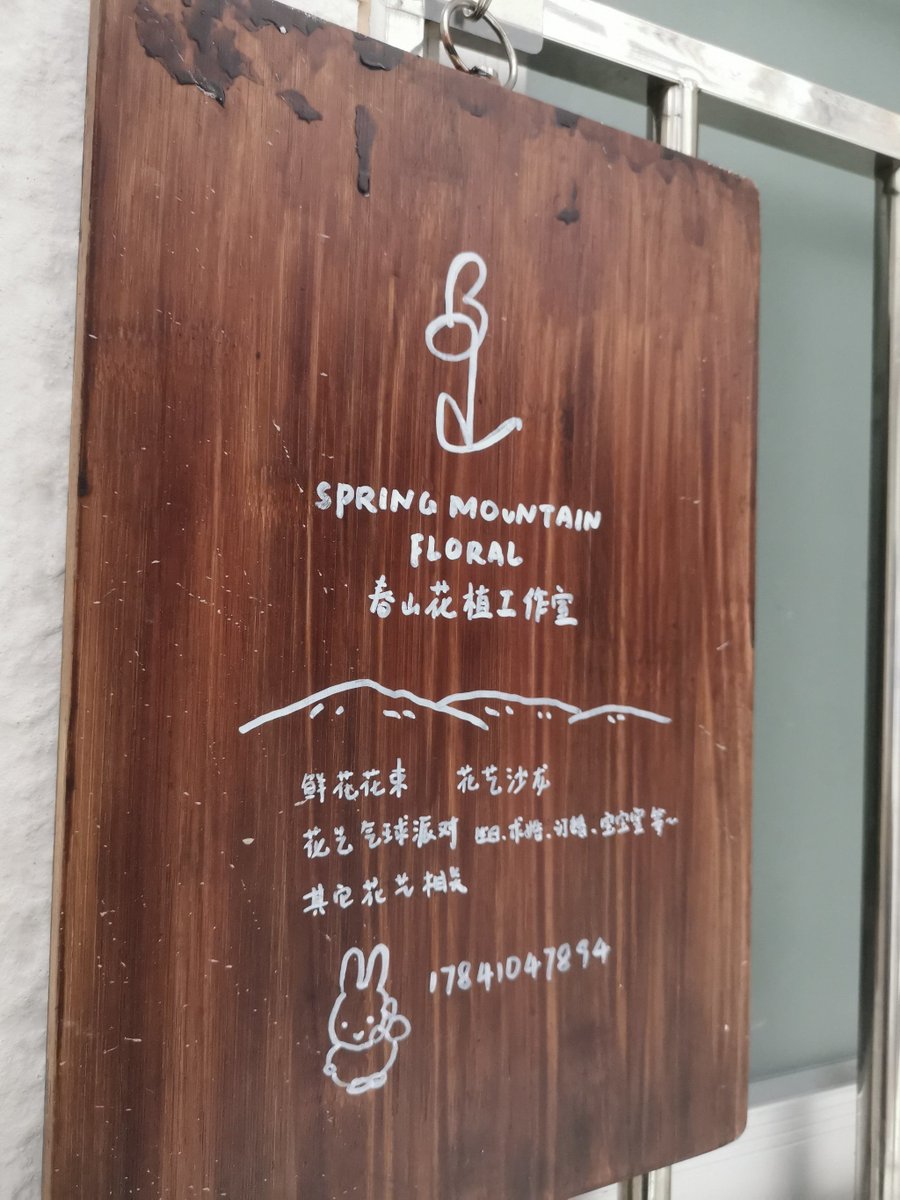 SPRING MOUNTAIN
FLORAL
春山花植工作室
鲜花花束 花艺沙龙
花艺气球派对 生日、求婚、订婚、宝宝宴等~
其它花艺相关
17841047894